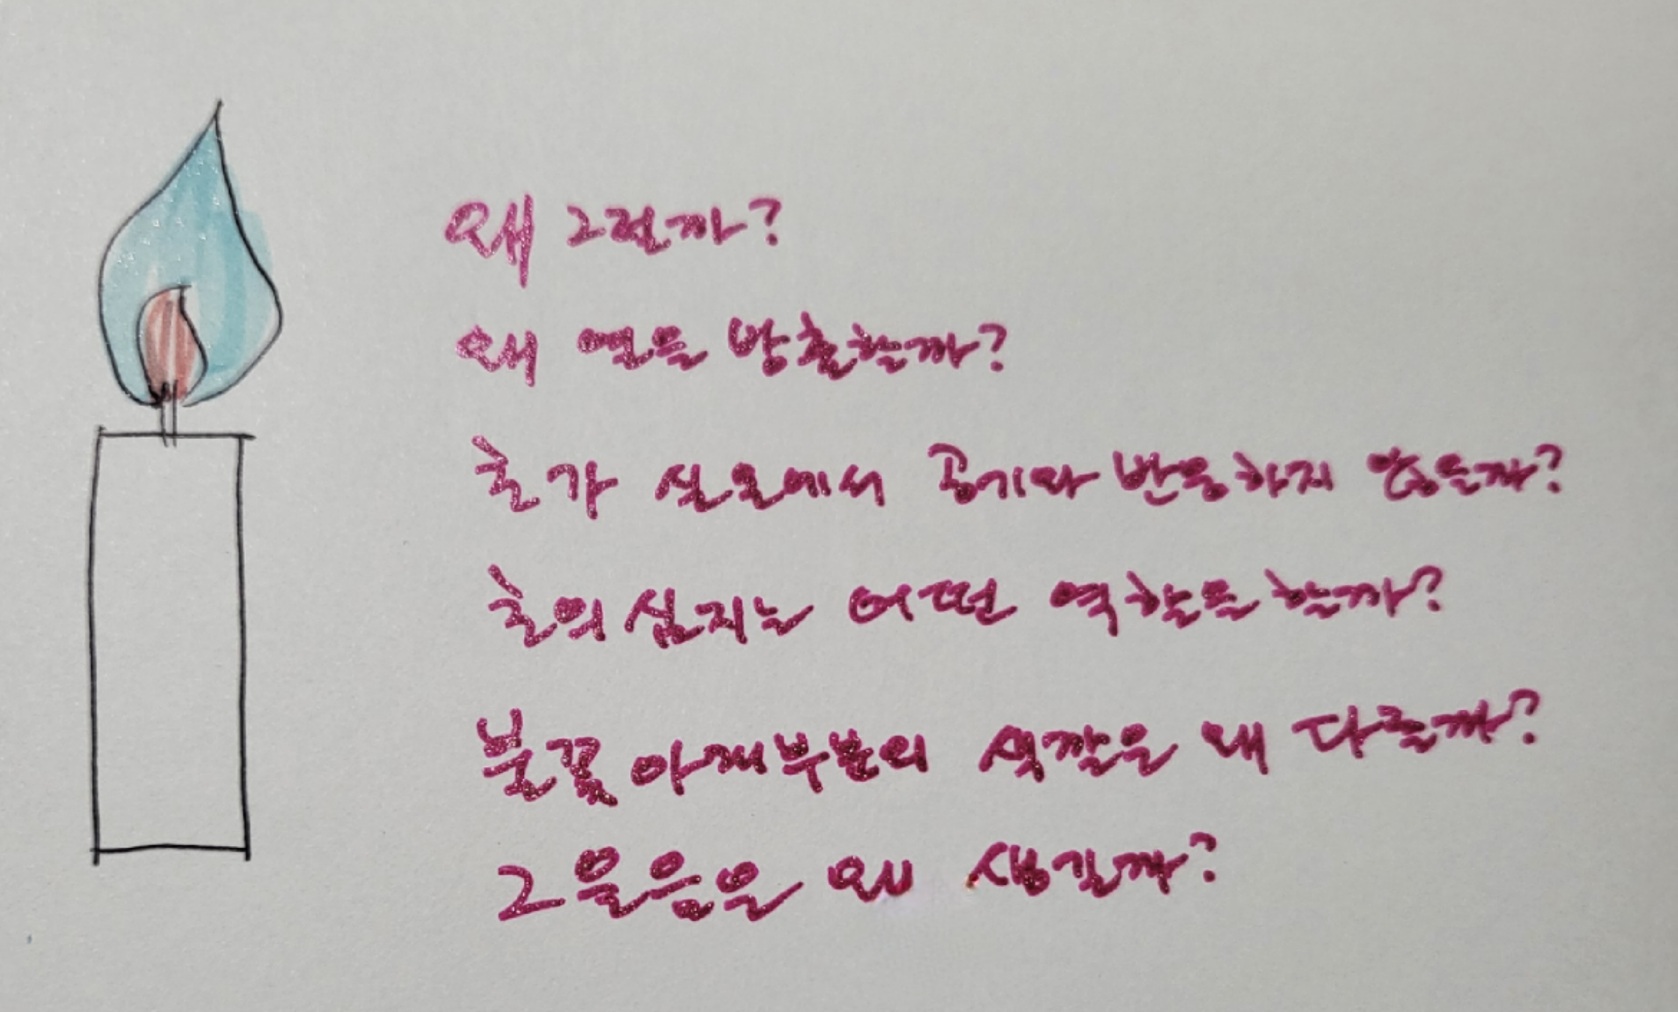 왜 그럴까?
왜 열을 방출할까?
초가 실온에서 공기와 반응하지 않을까?
초의 심지는 어떤 역할을 할까?
불꽃 아래부분의 색깔은 왜 다를까?
그을음은 왜 생길까?